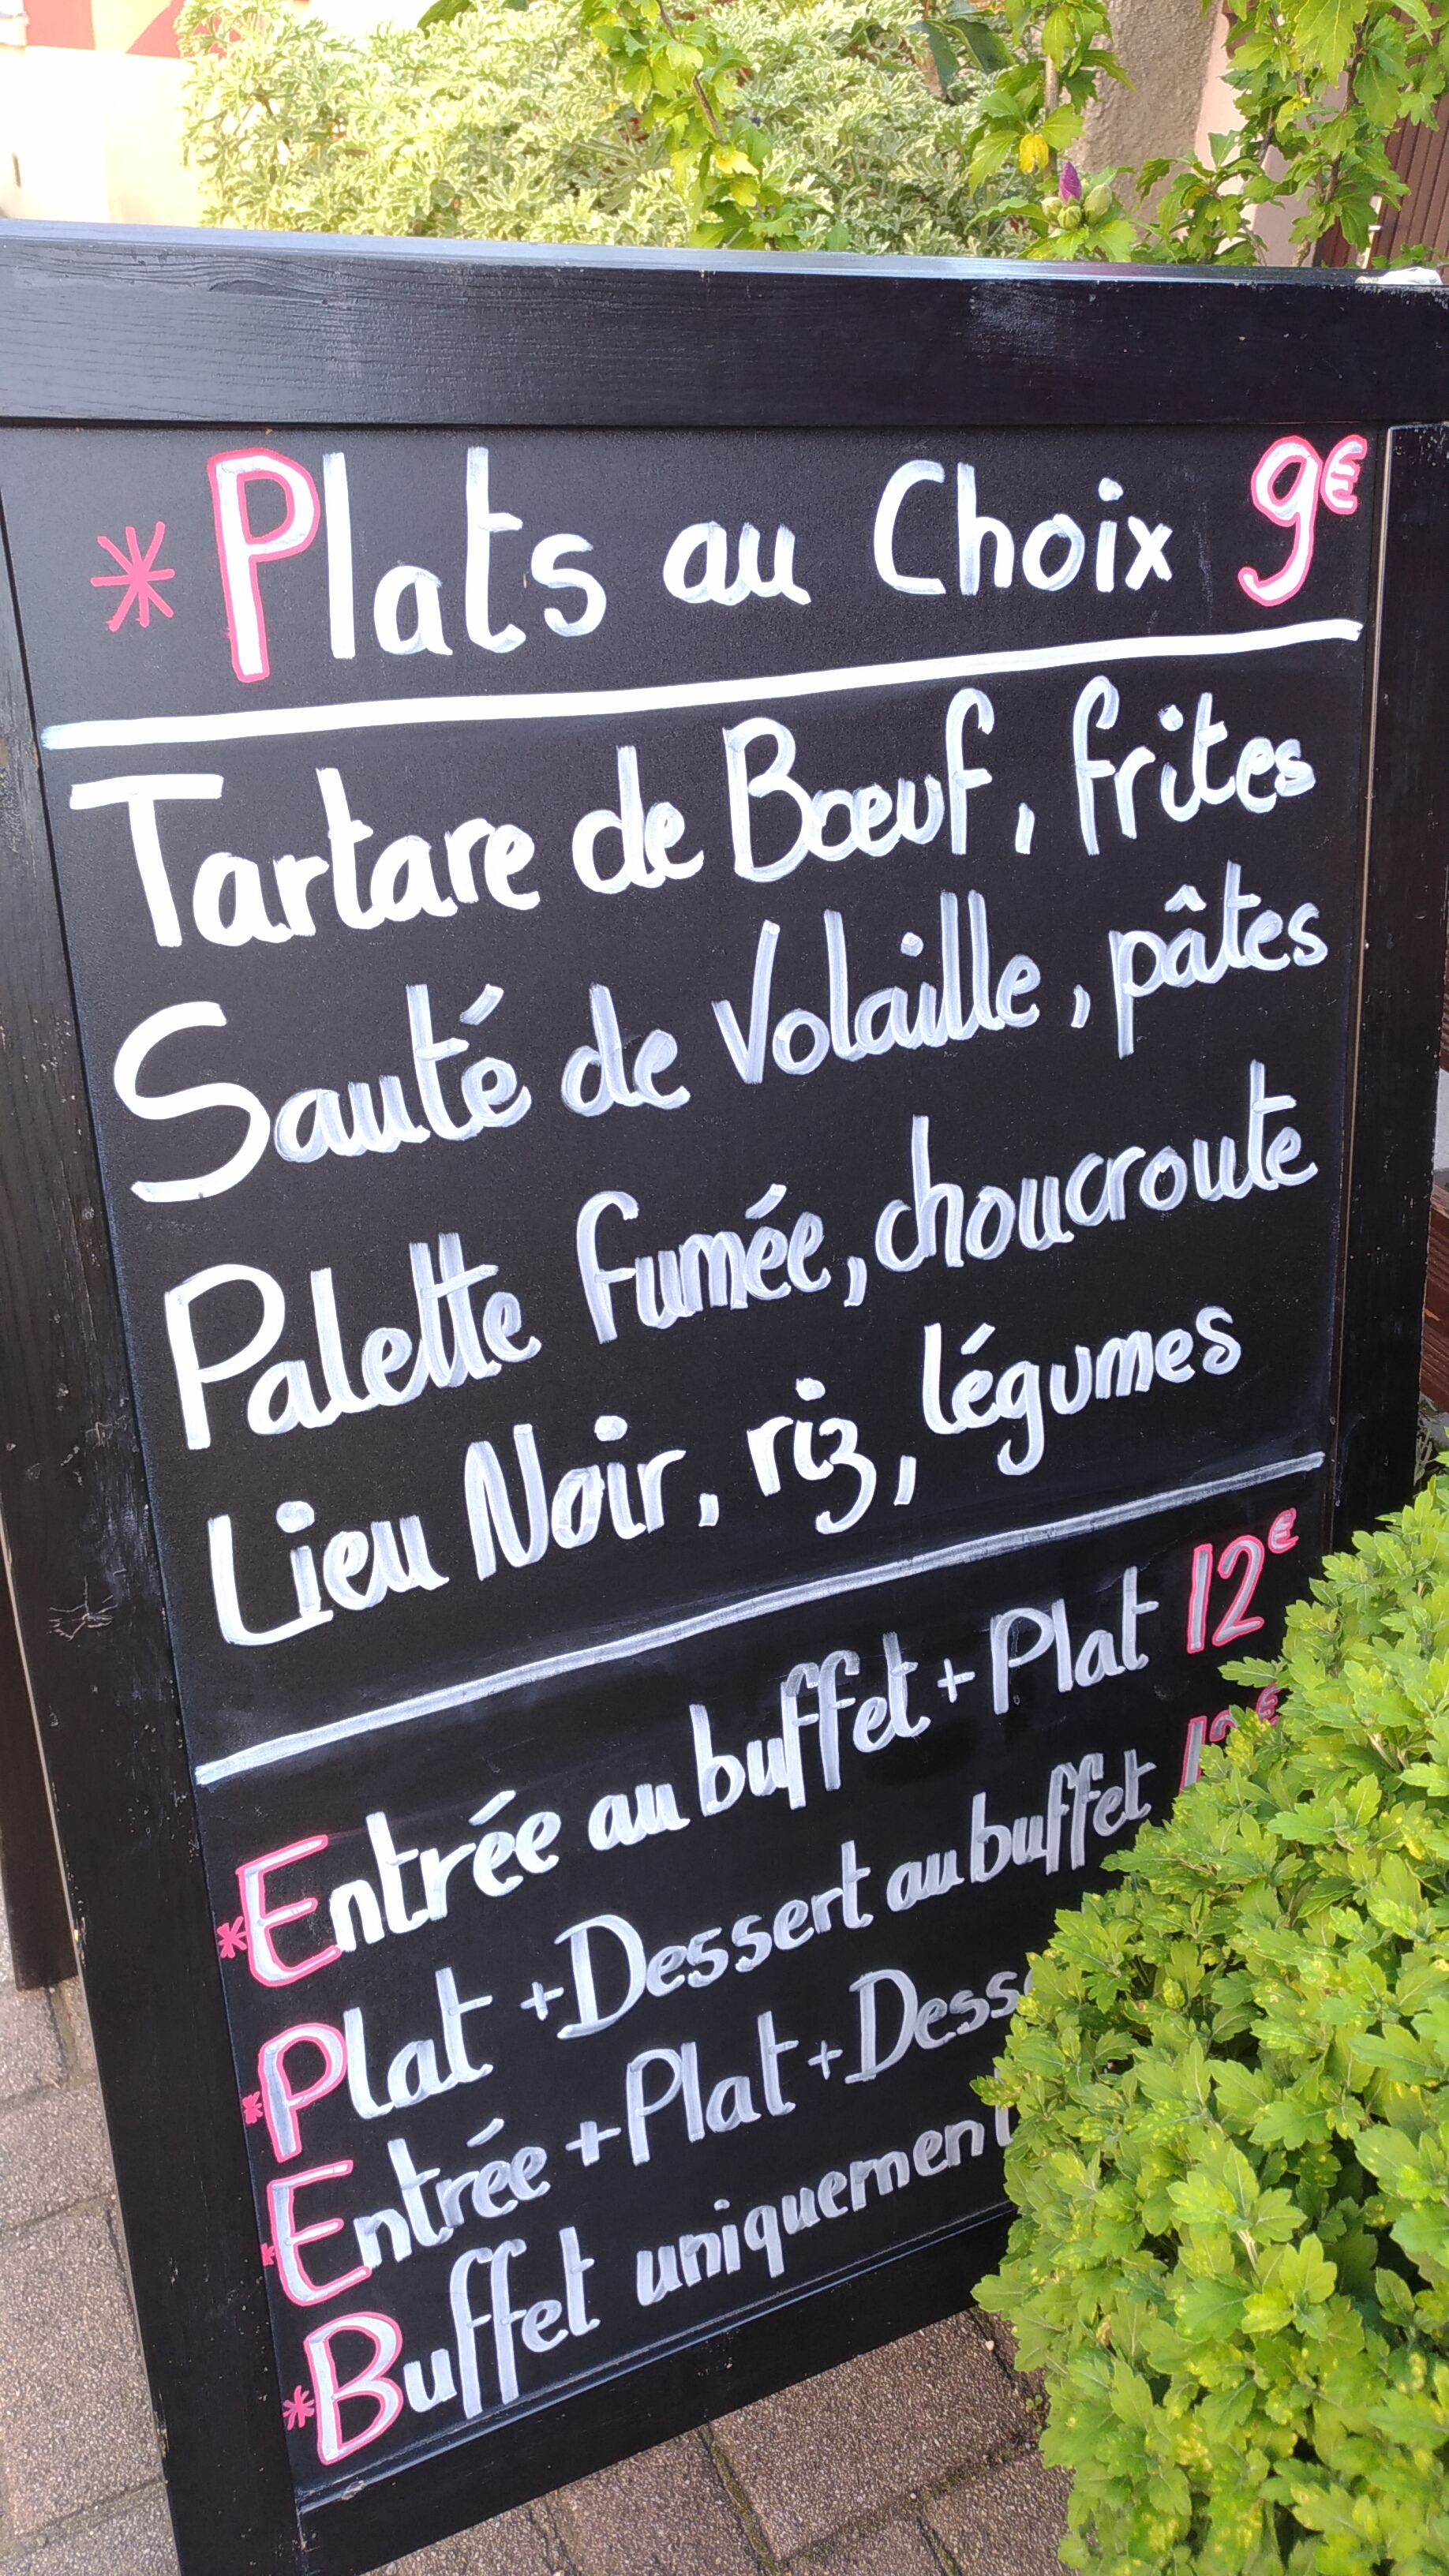 * Plats au Choix 9€
Tartare de Bœuf, frites
Sauté de Volaille, pâtes
Palette fumée, choucroute
Lieu Noir, riz, légumes
* Entrée au buffet + Plat 12€
* Plat + Dessert au buffet
* Entrée + Plat +
* Buffet uniquement